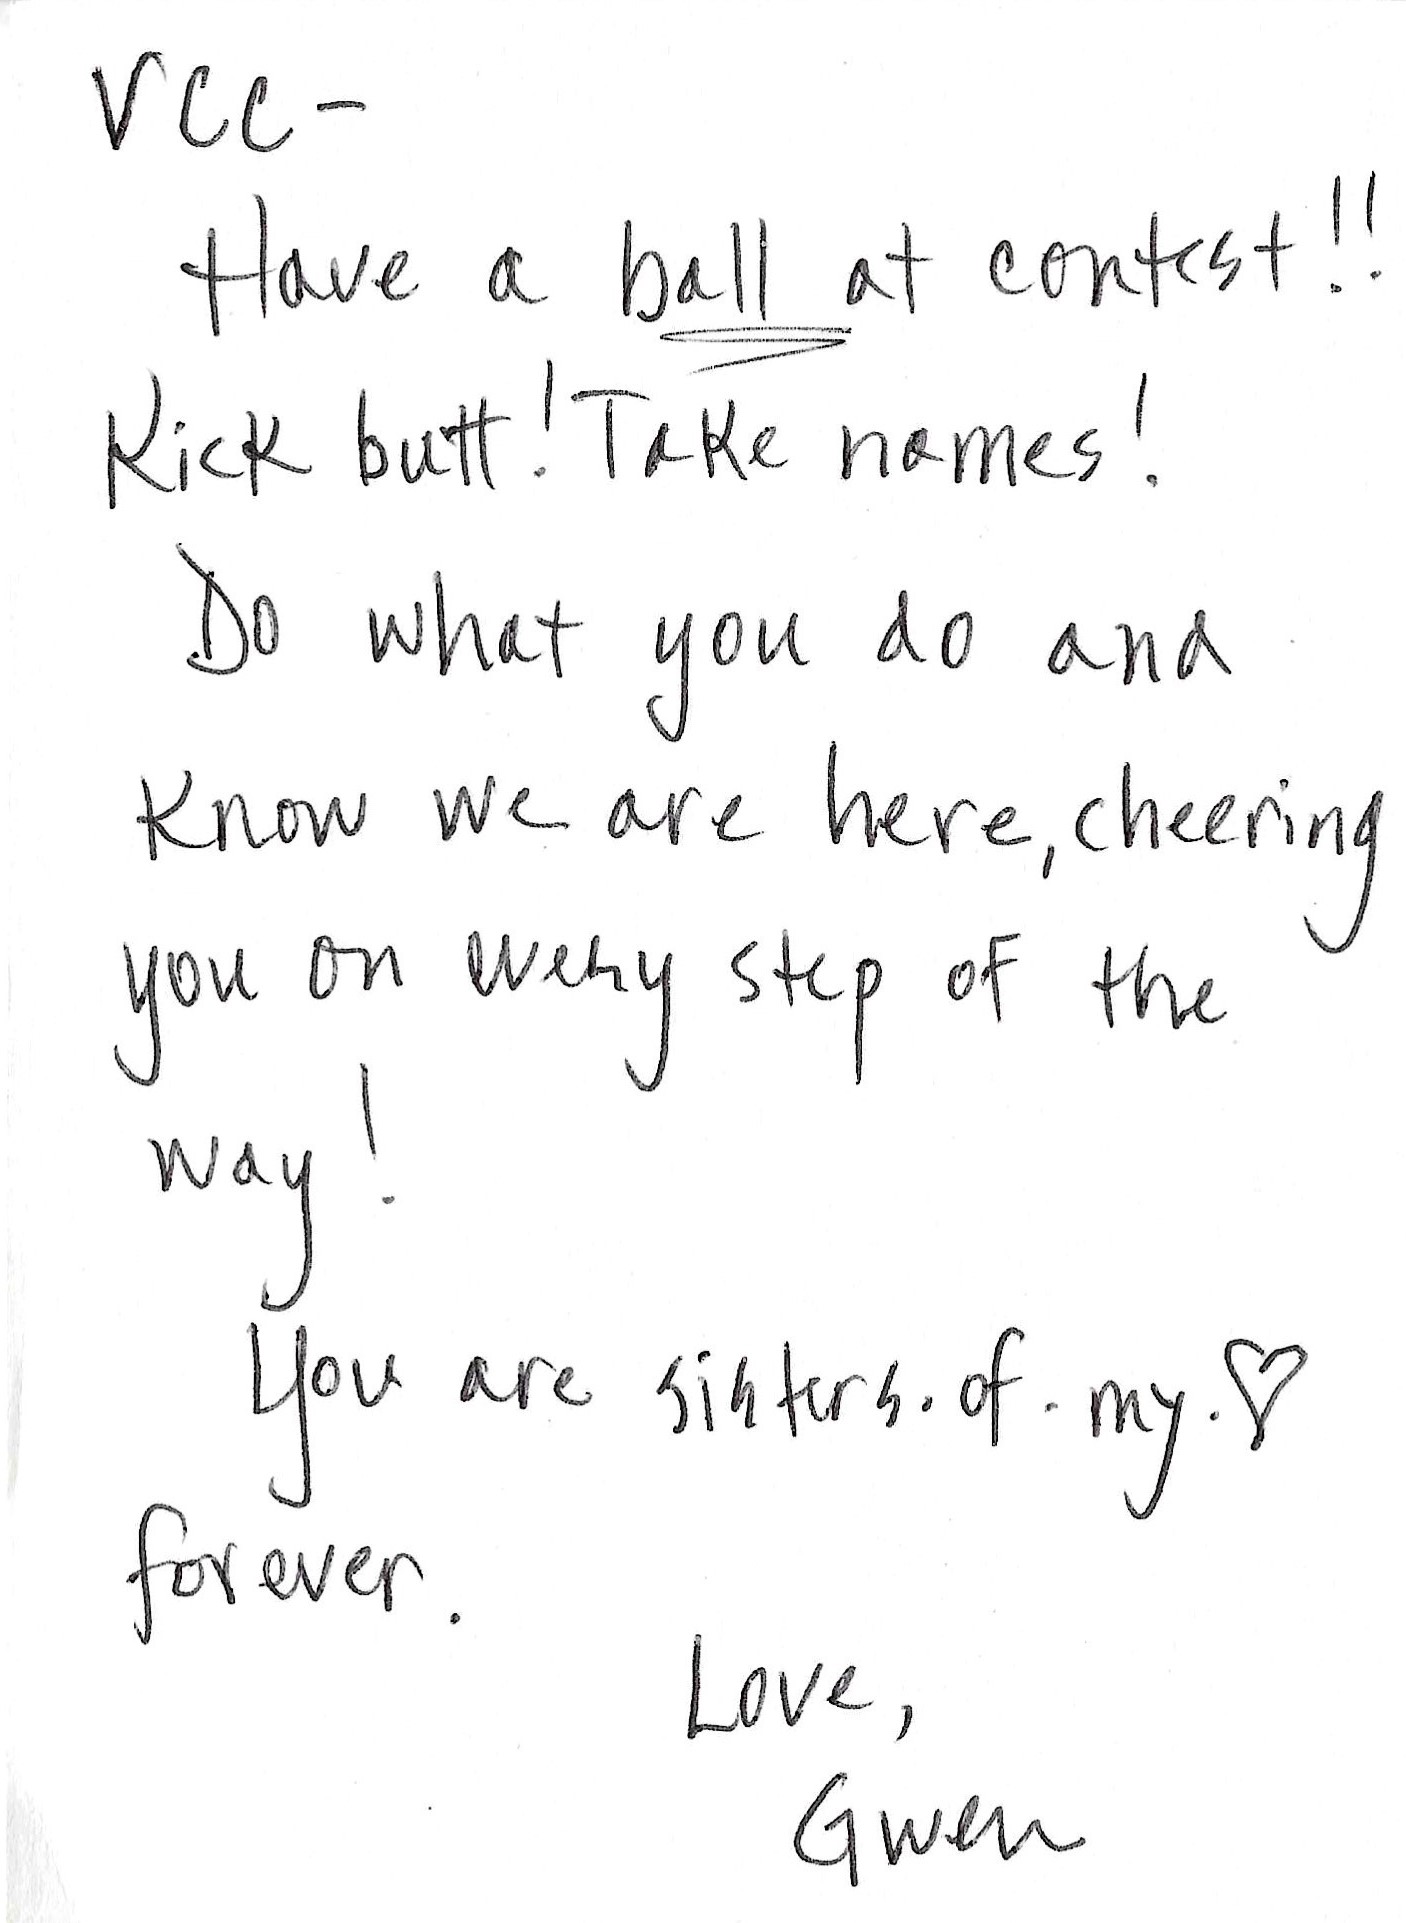 VCC-
Have a ball at contest!!
Kick butt! Take names!
Do what you do and
Know we are here, cheering
you on every step of the
way!
You are sisters.of.my.♡
forever.
Love,
Gwen